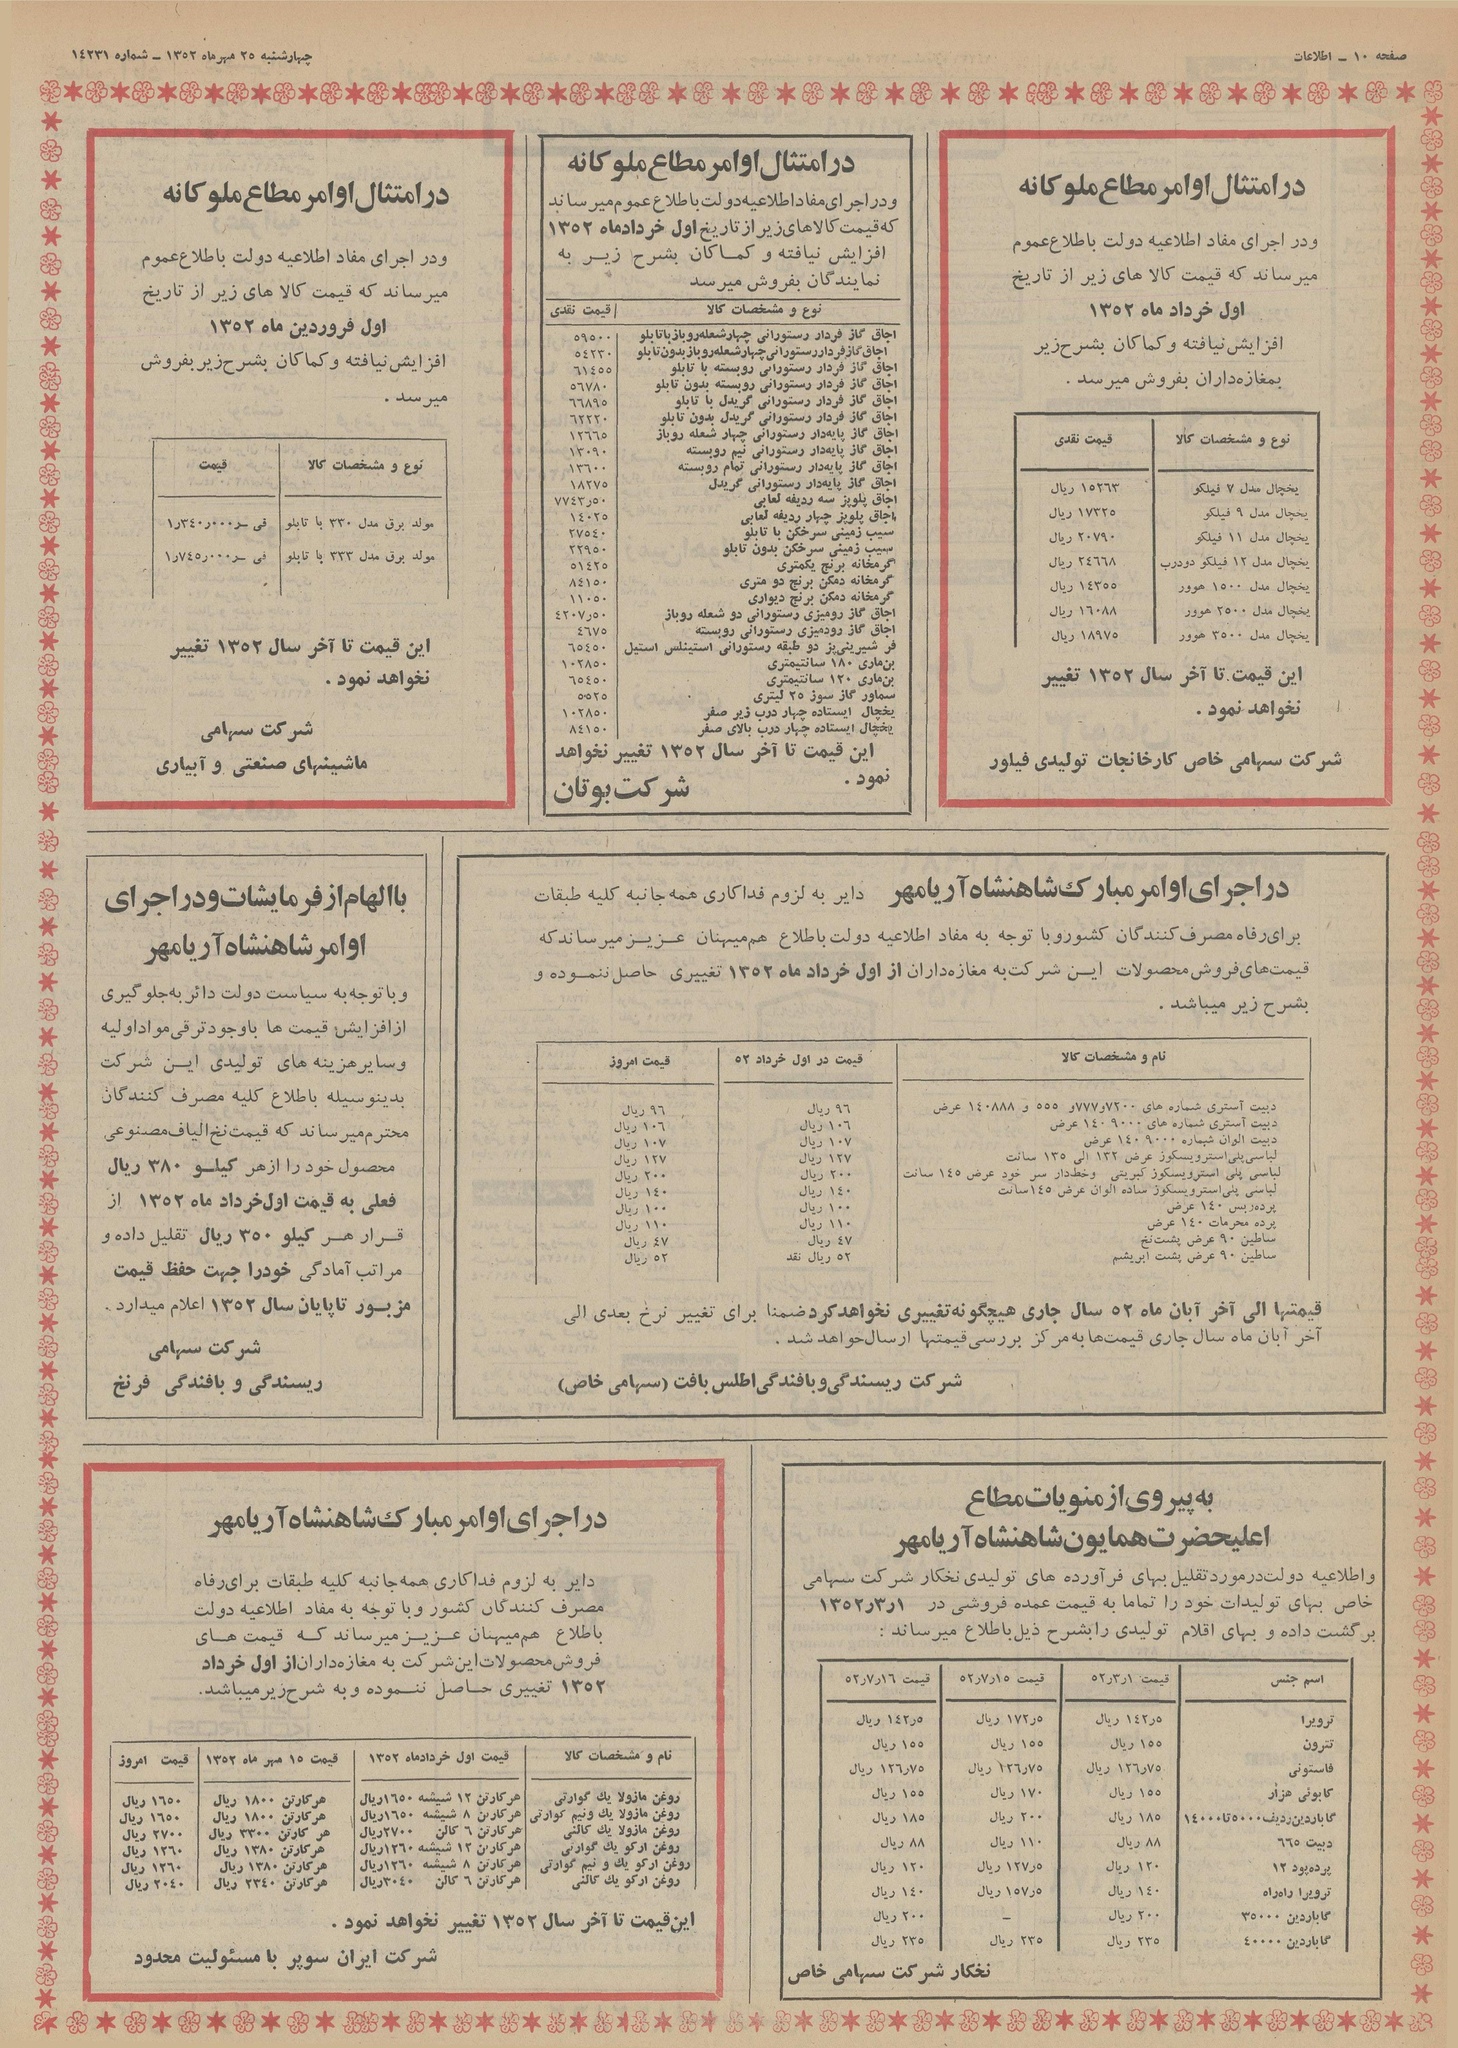 صفحه ۱۰ ـ اطلاعات
چهارشنبه ۲۵ مهرماه ۱۳۵۲ ـ شماره ۱۴۲۳۱
در امتثال اوامر مطاع ملوکانه
ودر اجرای مفاد اطلاعیه دولت باطلاع عموم
میرساند که قیمت کالا های زیر از تاریخ
اول خرداد ماه ۱۳۵۲
افزایش نیافته و کماکان بشرح زیر
بمغازه‌داران بفروش میرسد .
نوع و مشخصات کالا قیمت نقدی
یخچال مدل ۷ فیلکو ۱۵۲۶۳ ریال
یخچال مدل ۹ فیلکو ۱۷۳۲۵ ریال
یخچال مدل ۱۱ فیلکو ۲۰۷۹۰ ریال
یخچال مدل ۱۲ فیلکو دودرب ۲۴۶۶۸ ریال
یخچال مدل ۱۵۰۰ هوور ۱۴۳۵۵ ریال
یخچال مدل ۲۵۰۰ هوور ۱۶۰۸۸ ریال
یخچال مدل ۳۵۰۰ هوور ۱۸۹۷۵ ریال
این قیمت تا آخر سال ۱۳۵۲ تغییر
نخواهد نمود .
شرکت سهامی خاص کارخانجات تولیدی فیلور
در امتثال اوامر مطاع ملوکانه
ودر اجرای مفاد اطلاعیه دولت باطلاع عموم میرساند
که قیمت کالاهای زیر از تاریخ اول خردادماه ۱۳۵۲
افزایش نیافته و کماکان بشرح زیر به
نمایندگان بفروش میرسد
نوع و مشخصات کالا قیمت نقدی
اجاق گاز فردار رستورانی چهارشعله روباز با تابلو ۵۹۵۰۰
اجاق گاز فردار رستورانی چهارشعله روباز بدون تابلو ۵۴۲۳۰
اجاق گاز فردار رستورانی روبسته با تابلو ۶۱۴۵۵
اجاق گاز فردار رستورانی روبسته بدون تابلو ۵۶۷۸۰
اجاق گاز فردار رستورانی گریدل با تابلو ۶۶۸۹۵
اجاق گاز فردار رستورانی گریدل بدون تابلو ۶۲۲۲۰
اجاق گاز پایه‌دار رستورانی چهار شعله روباز ۱۲۶۶۵
اجاق گاز پایه‌دار رستورانی نیم روبسته ۱۳۰۹۰
اجاق گاز پایه‌دار رستورانی تمام روبسته ۱۳۶۰۰
اجاق گاز پایه‌دار رستورانی گریدل ۱۸۲۷۵
اجاق پلوپز سه ردیفه لعابی ۷۷۴۳ر۵۰
اجاق پلوپز چهار ردیفه لعابی ۱۴۰۲۵
سیب زمینی سرخکن با تابلو ۲۷۵۴۰
سیب زمینی سرخکن بدون تابلو ۲۲۹۵۰
گرمخانه برنج یکمتری ۵۱۴۲۵
گرمخانه دمکن برنج دو متری ۸۴۱۵۰
گرمخانه دمکن برنج دیواری ۱۱۰۵۰
اجاق گاز رومیزی رستورانی دو شعله روباز ۴۲۰۷ر۵۰
اجاق گاز رودمیزی رستورانی روبسته ۴۶۷۵
فر شیرینی‌پز دو طبقه رستورانی استینلس استیل ۶۵۴۵۰
بن‌ماری ۱۸۰ سانتیمتری ۱۰۲۸۵۰
بن‌ماری ۱۲۰ سانتیمتری ۶۵۴۵۰
سماور گاز سوز ۲۵ لیتری ۵۵۲۵
یخچال ایستاده چهار درب زیر صفر ۱۰۲۸۵۰
یخچال ایستاده چهار درب بالای صفر ۸۴۱۵۰
این قیمت تا آخر سال ۱۳۵۲ تغییر نخواهد
نمود .
شرکت بوتان
در امتثال اوامر مطاع ملوکانه
ودر اجرای مفاد اطلاعیه دولت باطلاع عموم
میرساند که قیمت کالا های زیر از تاریخ
اول فروردین ماه ۱۳۵۲
افزایش نیافته و کماکان بشرح زیر بفروش
میرسد .
نوع و مشخصات کالا قیمت
مولد برق مدل ۳۳۰ با تابلو فی ـر۰۰۰ر۳۴۰ر۱
مولد برق مدل ۳۳۳ با تابلو فی ـر۰۰۰ر۷۴۵ر۱
این قیمت تا آخر سال ۱۳۵۲ تغییر
نخواهد نمود .
شرکت سهامی
ماشینهای صنعتی و آبیاری
در اجرای اوامر مبارک شاهنشاه آریامهر دایر به لزوم فداکاری همه جانبه کلیه طبقات
برای رفاه مصرف کنندگان کشور و با توجه به مفاد اطلاعیه دولت باطلاع هم‌میهنان عزیز میرساند که
قیمت‌های فروش محصولات این شرکت به مغازه‌داران از اول خرداد ماه ۱۳۵۲ تغییری حاصل ننموده و
بشرح زیر میباشد .
نام و مشخصات کالا قیمت در اول خرداد ۵۲ قیمت امروز
دبیت آستری شماره های ۷۲۰۰و۷۷۷و ۵۵۵ و ۱۴۰۸۸۸ عرض ۹۶ ریال ۹۶ ریال
دبیت آستری شماره های ۹۰۰۰ ۱۴۰ عرض ۱۰۶ ریال ۱۰۶ ریال
دبیت الوان شماره ۹۰۰۰ ۱۴۰ عرض ۱۰۷ ریال ۱۰۷ ریال
لباسی پلی‌استرویسکوز عرض ۱۳۲ الی ۱۳۵ سانت ۱۲۷ ریال ۱۲۷ ریال
لباسی پلی استرویسکوز کبریتی وخط‌دار سر خود عرض ۱۴۵ سانت ۲۰۰ ریال ۲۰۰ ریال
لباسی پلی‌استرویسکوز ساده الوان عرض ۱۴۵سانت ۱۴۰ ریال ۱۴۰ ریال
پرده‌ریس ۱۴۰ عرض ۱۰۰ ریال ۱۰۰ ریال
پرده محرمات ۱۴۰ عرض ۱۱۰ ریال ۱۱۰ ریال
ساطین ۹۰ عرض پشت‌نخ ۴۷ ریال ۴۷ ریال
ساطین ۹۰ عرض پشت ابریشم ۵۲ ریال نقد ۵۲ ریال
قیمتها الی آخر آبان ماه ۵۲ سال جاری هیچگونه تغییری نخواهد کرد ضمنا برای تغییر نرخ بعدی الی
آخر آبان ماه سال جاری قیمت‌ها به مرکز بررسی قیمتها ارسال خواهد شد .
شرکت ریسندگی و بافندگی اطلس بافت (سهامی خاص)
با الهام از فرمایشات و در اجرای
اوامر شاهنشاه آریامهر
و با توجه به سیاست دولت دائر به جلوگیری
از افزایش قیمت ها با وجود ترقی مواد اولیه
و سایر هزینه های تولیدی این شرکت
بدینوسیله باطلاع کلیه مصرف کنندگان
محترم میرساند که قیمت نخ الیاف مصنوعی
محصول خود را از هر کیلو ۳۸۰ ریال
فعلی به قیمت اول خرداد ماه ۱۳۵۲ از
قرار هر کیلو ۳۵۰ ریال تقلیل داده و
مراتب آمادگی خود را جهت حفظ قیمت
مزبور تا پایان سال ۱۳۵۲ اعلام میدارد .
شرکت سهامی
ریسندگی و بافندگی فرنخ
به پیروی از منویات مطاع
اعلیحضرت همایون شاهنشاه آریامهر
واطلاعیه دولت درمورد تقلیل بهای فرآورده های تولیدی نخکار شرکت سهامی
خاص بهای تولیدات خود را تماما به قیمت عمده فروشی در ۱ر۳ر۱۳۵۲
برگشت داده و بهای اقلام تولیدی را بشرح ذیل باطلاع میرساند :
اسم جنس قیمت ۱ر۳ر۵۲ قیمت ۱۵ر۷ر۵۲ قیمت ۱۶ر۷ر۵۲
ترویرا ۱۴۲ر۵ ریال ۱۷۲ر۵ ریال ۱۴۲ر۵ ریال
تترون ۱۵۵ ریال ۱۵۵ ریال ۱۵۵ ریال
فاستونی ۱۲۶ر۷۵ ریال ۱۲۶ر۷۵ ریال ۱۲۶ر۷۵ ریال
کابوئی هزار ۱۵۵ ریال ۱۷۰ ریال ۱۵۵ ریال
گاباردین‌ردیف۵۰۰۰تا۱۴۰۰۰ ۱۸۵ ریال ۲۰۰ ریال ۱۸۵ ریال
دبیت ۶۶۵ ۸۸ ریال ۱۱۰ ریال ۸۸ ریال
پرده‌پود ۱۲ ۱۲۰ ریال ۱۲۷ر۵ ریال ۱۲۰ ریال
ترویرا راه‌راه ۱۴۰ ریال ۱۵۷ر۵ ریال ۱۴۰ ریال
گاباردین ۳۵۰۰۰ ۲۰۰ ریال ـ ۲۰۰ ریال
گاباردین ۴۰۰۰۰ ۲۳۵ ریال ۲۳۵ ریال ۲۳۵ ریال
نخکار شرکت سهامی خاص
در اجرای اوامر مبارک شاهنشاه آریامهر
دایر به لزوم فداکاری همه جانبه کلیه طبقات برای رفاه
مصرف کنندگان کشور و با توجه به مفاد اطلاعیه دولت
باطلاع هم‌میهنان عزیز میرساند که قیمت های
فروش محصولات این شرکت به مغازه‌داران از اول خرداد
۱۳۵۲ تغییری حاصل ننموده و به شرح زیر میباشد.
نام و مشخصات کالا قیمت اول خردادماه ۱۳۵۲ قیمت ۱۵ مهر ماه ۱۳۵۲ قیمت امروز
روغن مازولا یك گوارتی هرکارتن ۱۲ شیشه ۱۶۵۰ریال هرکارتن ۱۸۰۰ ریال ۱۶۵۰ ریال
روغن مازولا یك ونیم کوارتی هرکارتن ۸ شیشه ۱۶۵۰ریال هرکارتن ۱۸۰۰ ریال ۱۶۵۰ ریال
روغن مازولا یك کالنی هرکارتن ۶ کالن ۲۷۰۰ریال هر کارتن ۳۳۰۰ ریال ۲۷۰۰ ریال
روغن ارکو یك گوارتی هرکارتن ۱۲ شیشه ۱۲۶۰ریال هرکارتن ۱۳۸۰ ریال ۱۲۶۰ ریال
روغن ارکو یك و نیم گوارتی هرکارتن ۸ شیشه ۱۲۶۰ریال هرکارتن ۱۳۸۰ ریال ۱۲۶۰ ریال
روغن ارکو یك کالنی هرکارتن ۶ کالن ۲۰۴۰ریال هرکارتن ۲۳۴۰ ریال ۲۰۴۰ ریال
این قیمت تا آخر سال ۱۳۵۲ تغییر نخواهد نمود .
شرکت ایران سوپر با مسئولیت محدود